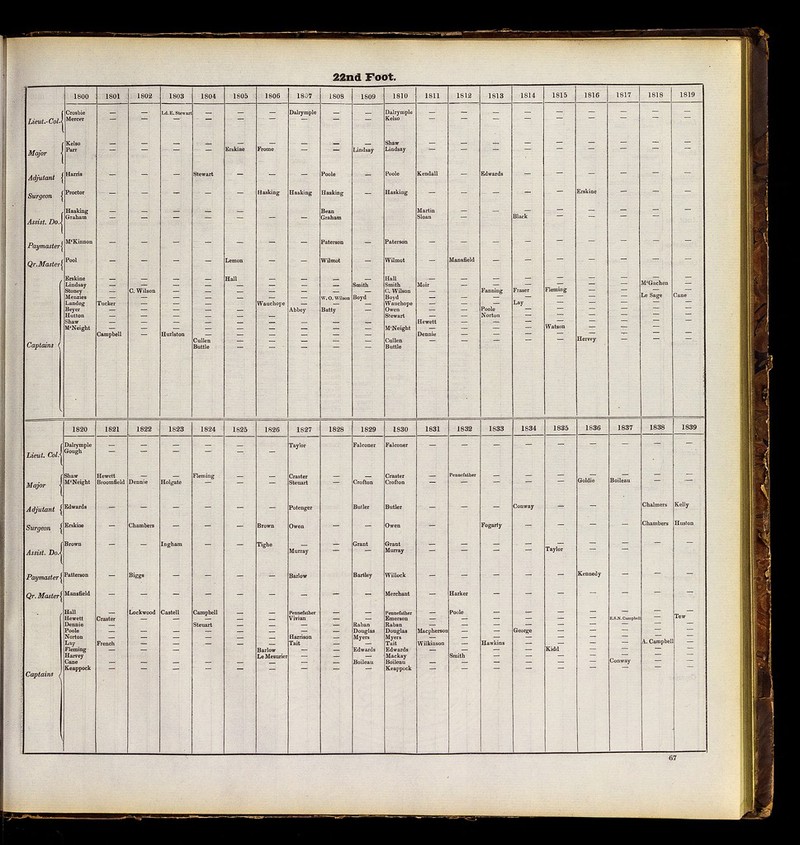 22nd Foot.
1800 1801 1802 1803 1804 1805 1806 1807 1808 1809 1810 1811 1812 1813 1814 1815 1816 1817 1818 1819
Lieut.-Col. Crosbie — — Ld. E. Stewart — — — Dalrymple — — Dalrymple — — — — — — — — —
Mercer — — — — — — — — — Kelso — — — — — — — — —
Kelso — — — — — — — — — Shaw — — — — — — — — —
Major Parr — — — — Erskine Frome — — Lindsay Lindsay — — — — — — — — —
Adjutant Harris — — — Stewart — — — Poole — Poole Kendall — Edwards — — — — — —
Surgeon Proctor — — — — — Hasking Hasking Hasking — Hasking — — — — — Erskine — — —
Hasking — — — — — Bean Martin — — — — — — — —
Assist. Do. Graham — — — — — Graham Sloan — — Black — — — — —
Paymaster M'Kinnon — — — — — — — Paterson — Paterson — — — — — — — — —
Qr. Master Pool — — — — Lemon — — Wilmot — Wilmot — Mansfield — — — — — — —
Erskine — — — — Hall — — — — Hall — — — — — — — — —
Lindsay — — — — — — — — Smith Smith Moir — — — — — — M'Gachen —
Stoney — C. Wilson — — — — — — — C. Wilson — — Fanning Fraser Fleming — — — —
Menzies — — — — — — — W. O. Wilson Boyd Boyd — — — — — — — Le Sage Cane
Landeg Tucker — — — — Wauchope — — — Wauchope — — — Lay — — — — —
Beyer — — — — — — Abbey Batty — Owen — — Poole — — — — — —
Hutton — — — — — — — — — Stewart — — Norton — — — — — —
Shaw — — — — — — — — — Hewett — — — — — — — —
M'Neight — — — — — — — — — M'Neight — — — — Watson — — — —
Campbell — Hurlston — — — — — — Dennie — — — — — — — —
Captains Cullen — — — — — Cullen — — — — — Hervey — — —
Buttle — — — — — Buttle
1820 1821 1822 1823 1824 1825 1826 1827 1828 1829 1830 1831 1832 1833 1834 1835 1836 1837 1838 1839
Dalrymple — — — — — — Taylor Falconer Falconer — — — — — — — — —
Lieut. Col. Gough — — — — — —
Shaw Hewett — — Fleming — — Craster — — Craster — Pennefather — — — — — — —
Major M'Neight Broomfield Dennie Holgate — — — Steuart — Crofton Crofton — — — — — Goldie Boileau — —
Adjutant Edwards — — — — — — Potenger Butler Butler — — — Conway — — — Chalmers Kelly
Surgeon Erskine — Chambers — — — Brown Owen — — Owen — — Fogarty — — — — Chambers Huston
Brown — — Ingham — — Tighe — — Grant Grant — — — — — — — — —
Assist. Do. Murray — — Murray — — — — Taylor — — — —
Paymaster Patterson — Biggs — — — — Barlow Bartley Willock — — — — — Kennedy — — —
Qr. Master Mansfield — — — — — — — — — Merchant — Harker — — — — — — —
Hall — Lockwood Castell Campbell — — Pennefather — — Pennefather — Poole — — — — — — —
Hewett Craster — — — — — Vivian — — Emerson — — — — — — E.S.N. Campbell — Tew
Dennie — — — Steuart — — — — Raban Raban — — — — — — — — —
Poole — — — — — — — — Douglas Douglas Macpherson — — George — — — — —
Norton — — — — — — Harrison — Myers Myers — — — — — — — — —
Lay French — — — — — Tait — — Tait Wilkinson — Hawkins — — — — A. Campbell —
Fleming — — — — — Barlow — — Edwards Edwards — — — — Kidd — — — —
Harvey — — — — — Le Mesurier — — — Mackay — Smith — — — — — — —
Cane — — — — — — — — Boileau Boileau — — — — — — Conway — —
Captains Keappock — — — — — — — — — Keappock — — — — — — — — —
67